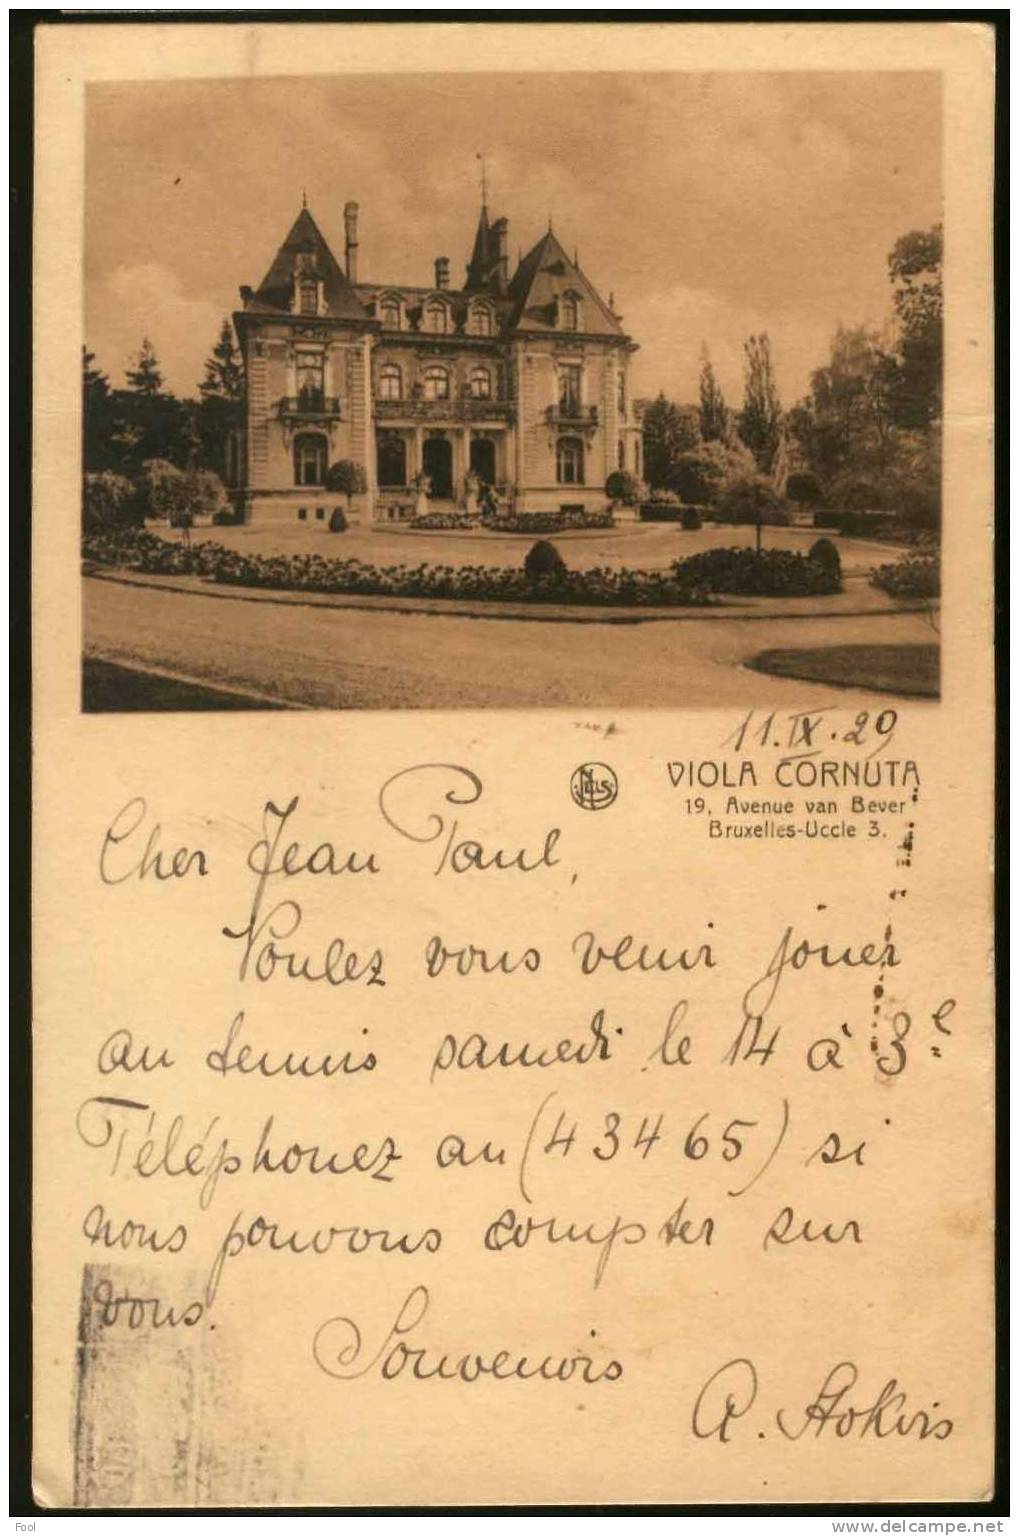 11.IX.29
NELS
VIOLA CORNUTA
19, Avenue van Bever
Bruxelles-Uccle 3.
Cher Jean Paul,
Voulez vous venir jouer
au tennis samedi le 14 à 3
Téléphonez au (43465) si
nous pouvons compter sur
vous.
Souvenirs
A. Stokvis
Fool
www.delcampe.net